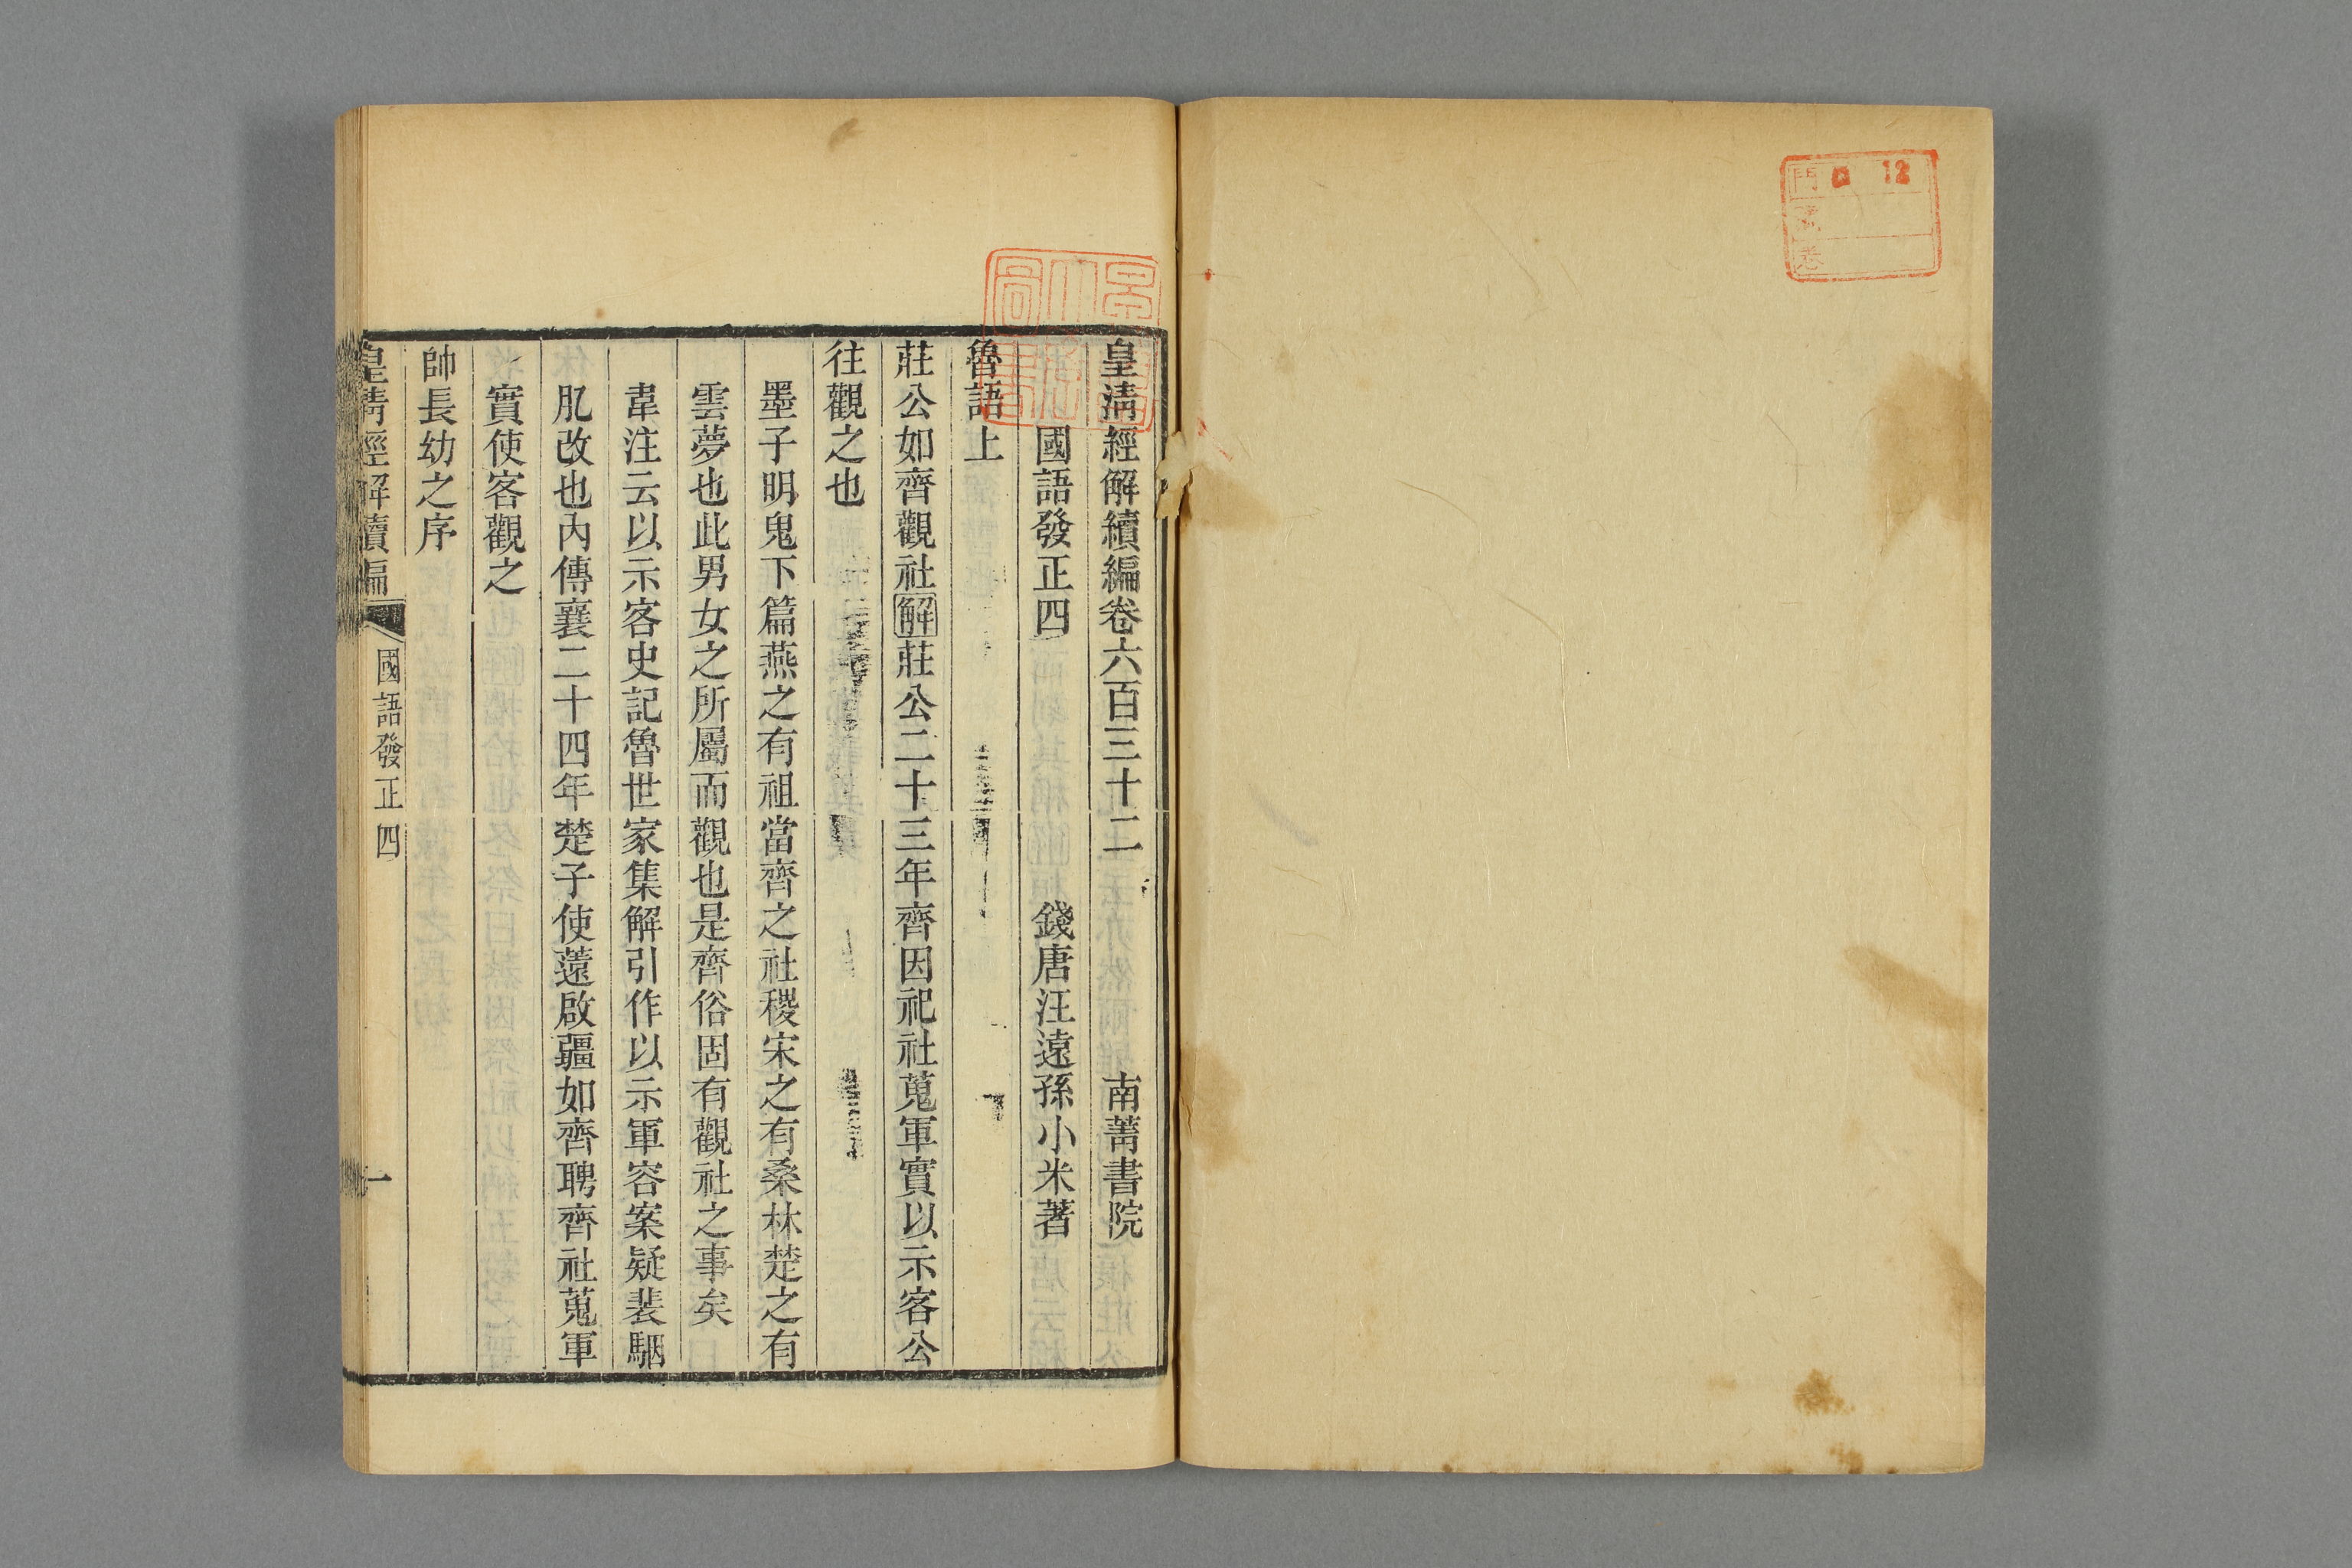 12
門
號
卷
皇清經解續編卷六百三十二　南菁書院
國語發正四　錢唐汪遠孫小米著
魯語上
莊公如齊觀社解莊公二十三年齊因祀社蒐軍實以示客公
往觀之也
墨子明鬼下篇燕之有祖當齊之社稷宋之有桑林楚之有
雲夢也此男女之所屬而觀也是齊俗固有觀社之事矣
韋注云以示客史記魯世家集解引作以示軍容案疑裴駰
肊改也內傳襄二十四年楚子使薳啟疆如齊聘齊社蒐軍
實使客觀之
帥長幼之序
皇清經解續編　國語發正四　一